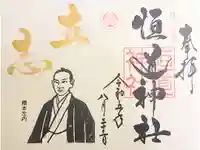 奉拝
恒道神社
令和五年
八月二十二日
立志
橋本左内